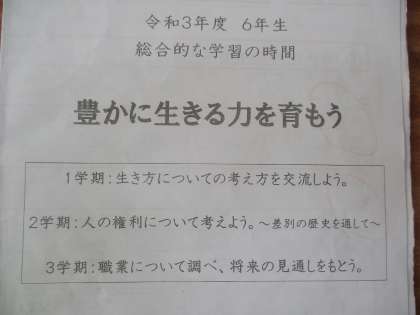 令和3年度 6年生
総合的な学習の時間
豊かに生きる力を育もう
1学期：生き方についての考え方を交流しよう。
2学期：人の権利について考えよう。～差別の歴史を通して～
3学期：職業について調べ、将来の見通しをもとう。